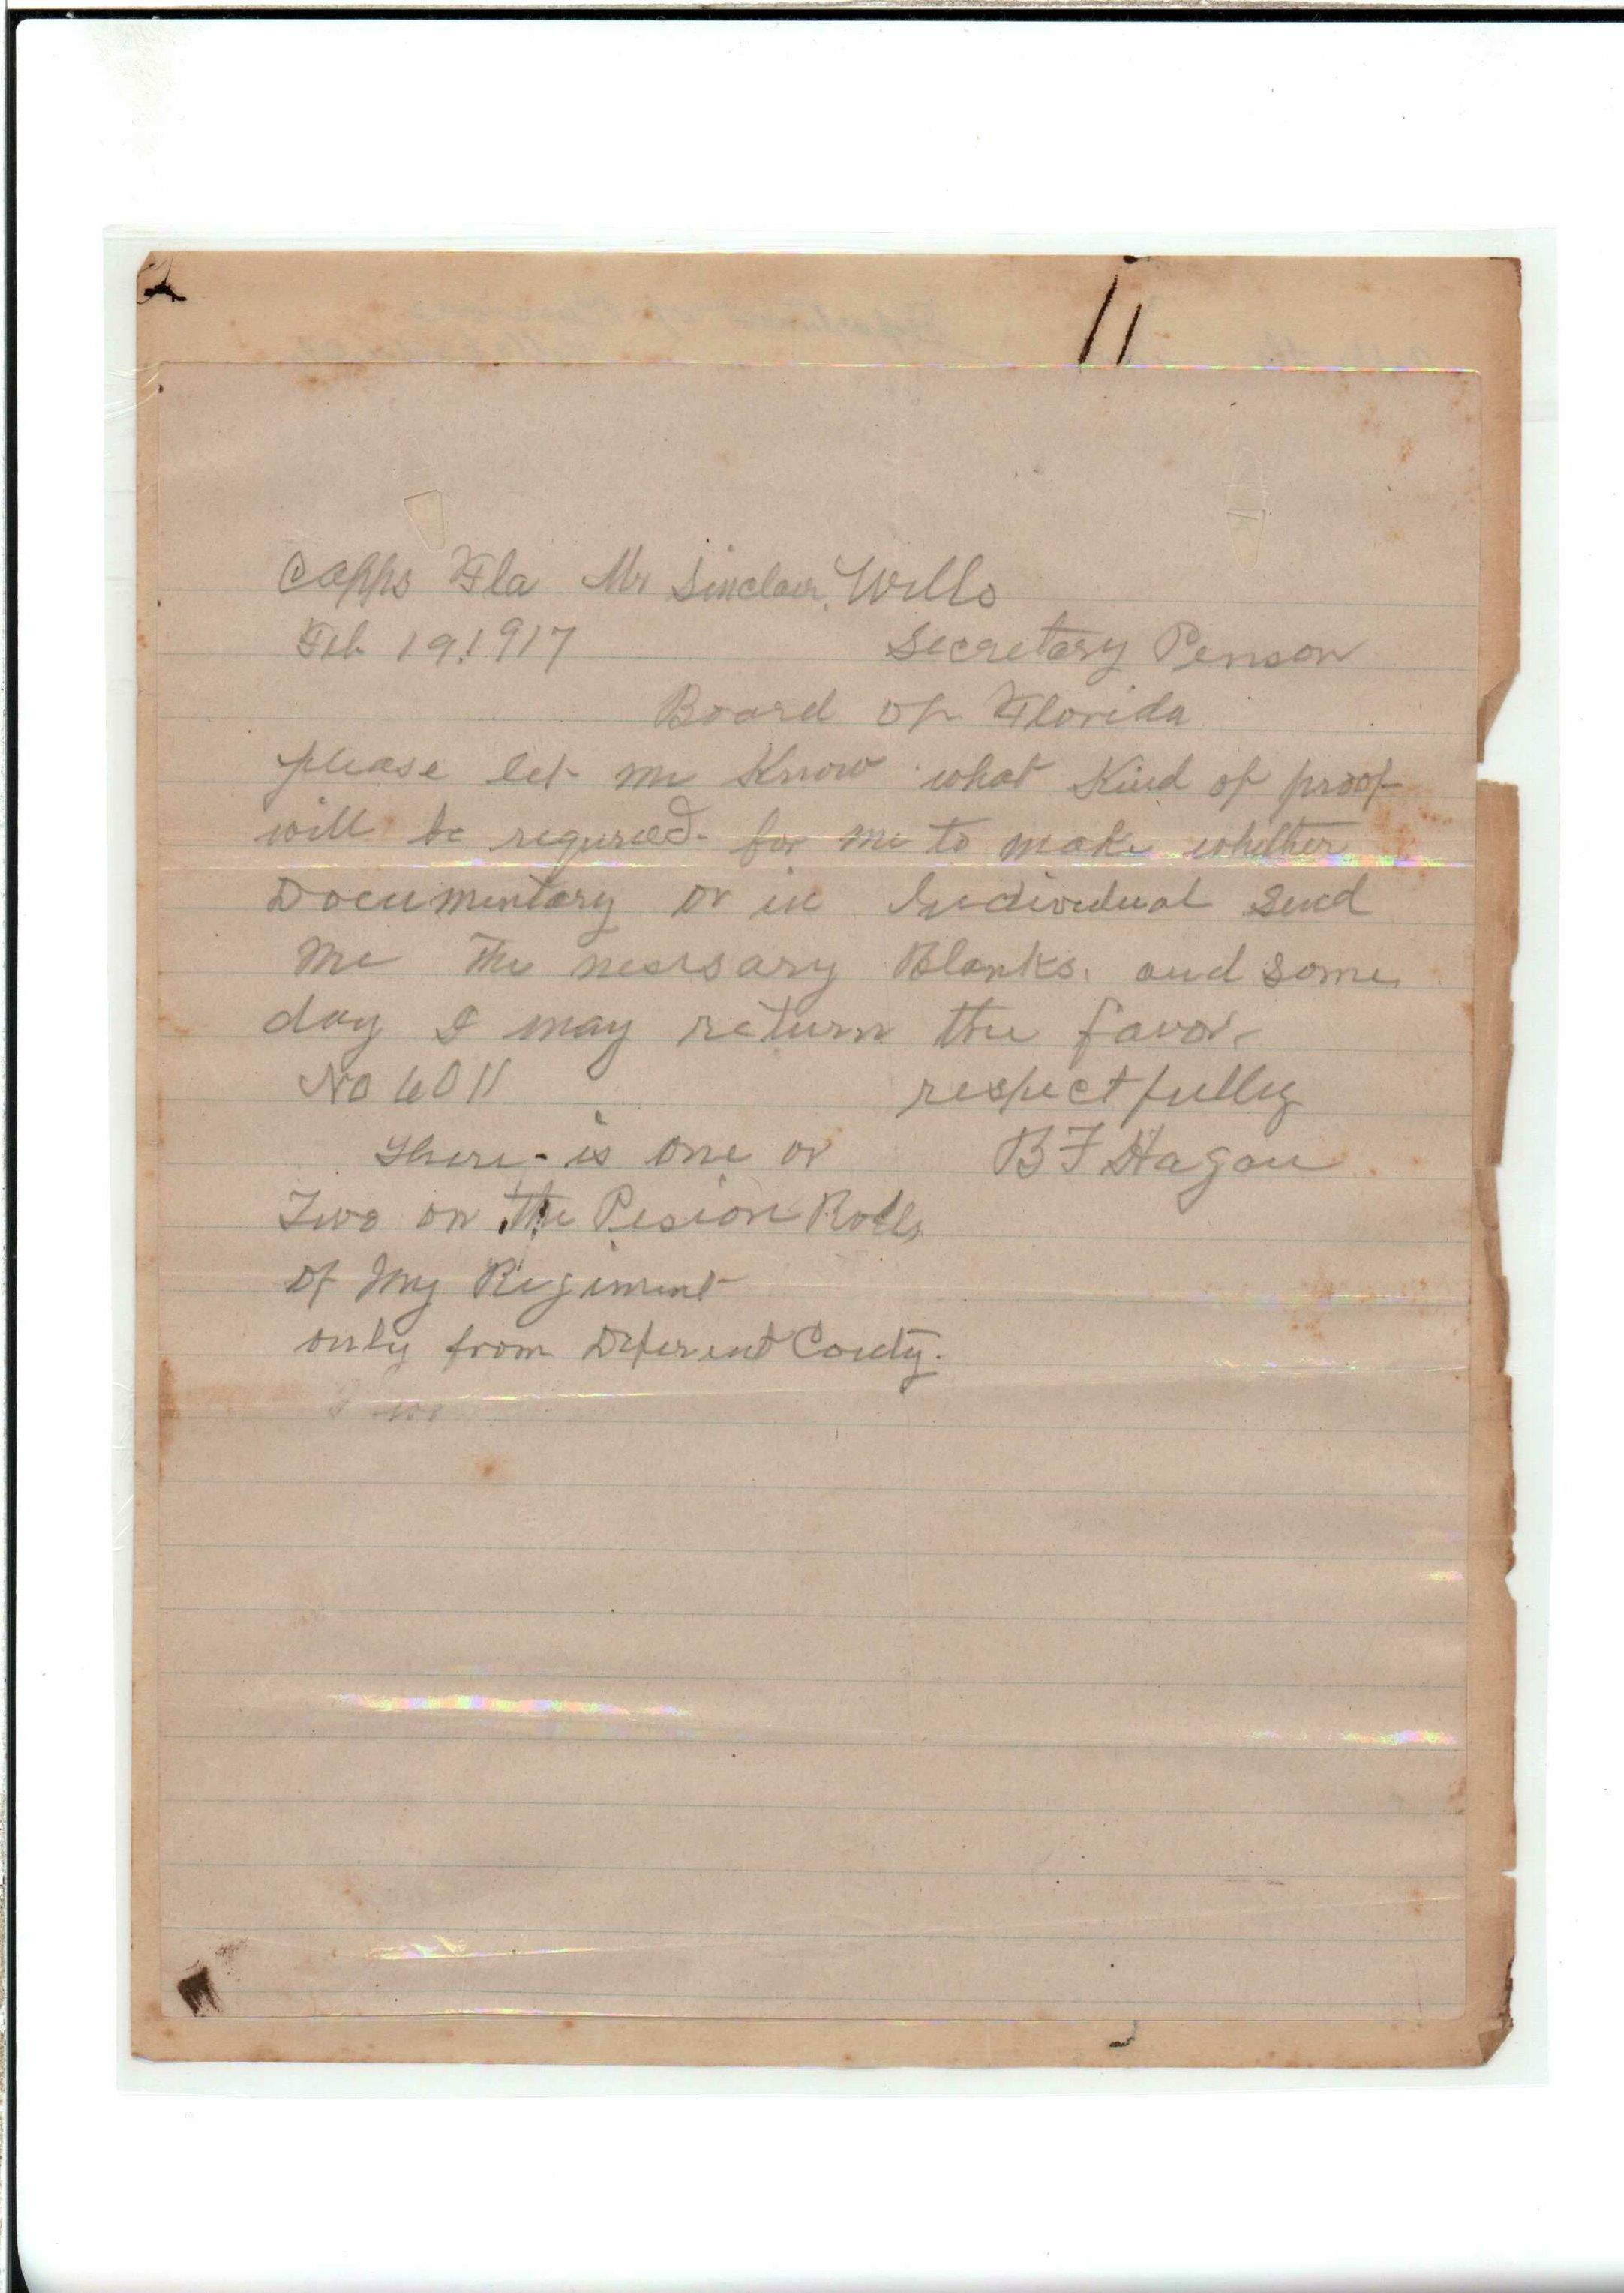 Capps Fla Mr Sinclair Wells
Feb 19.1917 Secretary Penson
Board of Florida
please let me Know what Kind of proof
will be requred for me to make whether
Documentary or in Individual send
me The necssary Blanks. and some
day I may return the favor
No 6011 respectfully
There is one or B F Hagan
Two on the Pesion Rolls
of My Regiment
only from Diferent County.